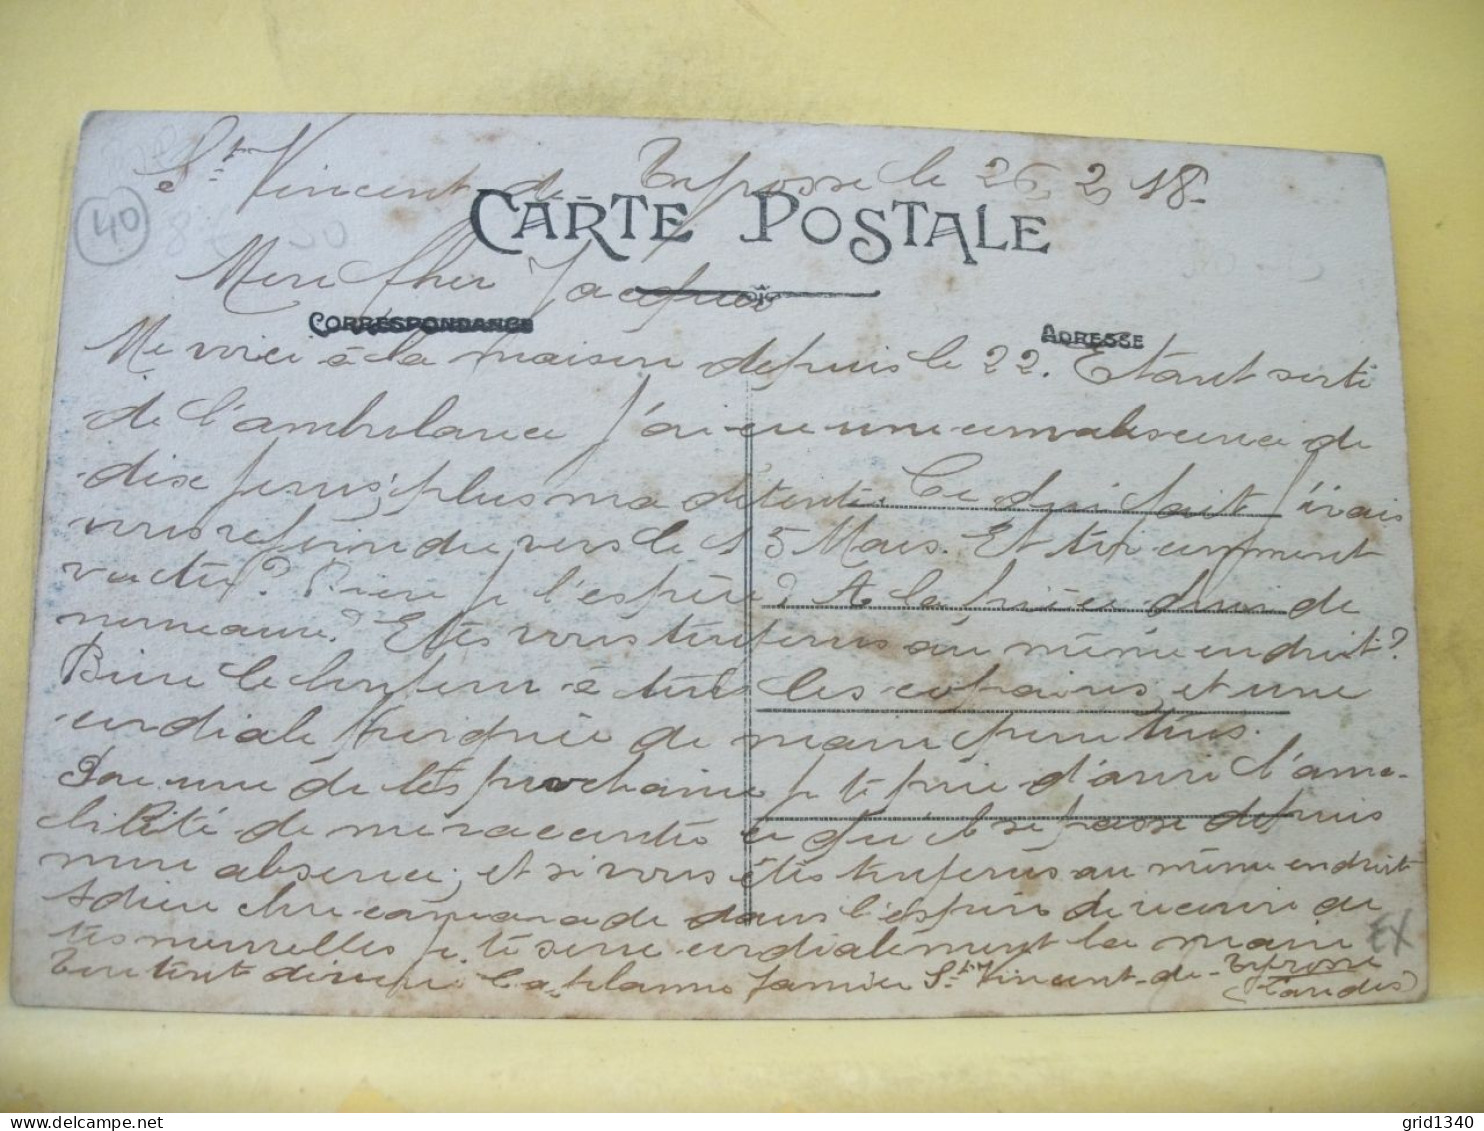 St Vincent de Tyrosse le 26 2 18.
CARTE POSTALE
40
Mon cher Jacques
CORRESPONDANCE
ADRESSE
Me voici à la maison depuis le 22. Etant sorti
de l'ambulance j'ai eu une convalescence de
dix jours, plus ma détente. Ce qui fait j'irais
vous rejoindre vers le 15 Mars. Et toi comment
vas tu? Bien je l'espère? A la pièce quoi de
nouveau? Etes vous toujours au même endroit?
Bien le bonjour à tous les copains, et une
cordiale poignée de main pour tous.
Sur une de tes prochaines je te prie d'avoir l'ama-
bilité de me raconter ce qu'il se passe depuis
mon absence; et si vous êtes toujours au même endroit
Adieu cher camarade dans l'espoir de recevoir de
tes nouvelles je te serre cordialement la main
Ton tout dévoué St Vincent-de-Tyrosse
(Landes)
EX
grid1340